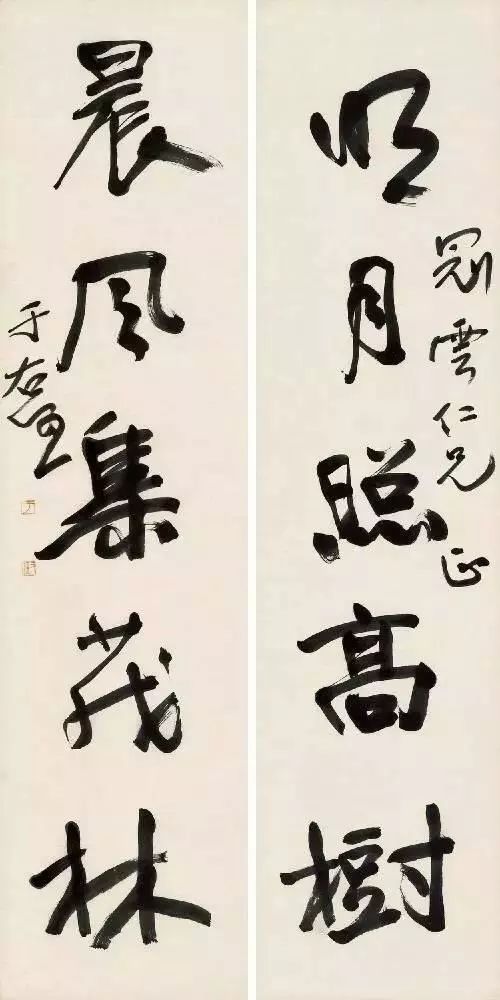 明月照高樹
冠雲仁兄 正
晨風集茂林
于右任